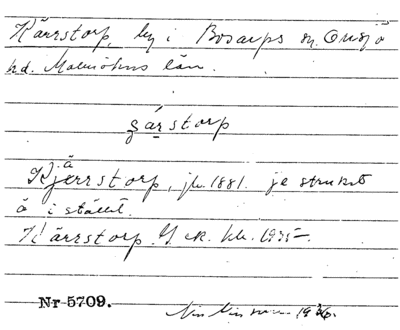 Kärrstorp, by i Bosarps sn. Onsjö
hd. Malmöhus län.
gárstorp
ä
Kjerrstorp, jb. 1881. je struket
ä i stället.
Kärrstorp. G.st. kbl. 1935
Nr 5709.